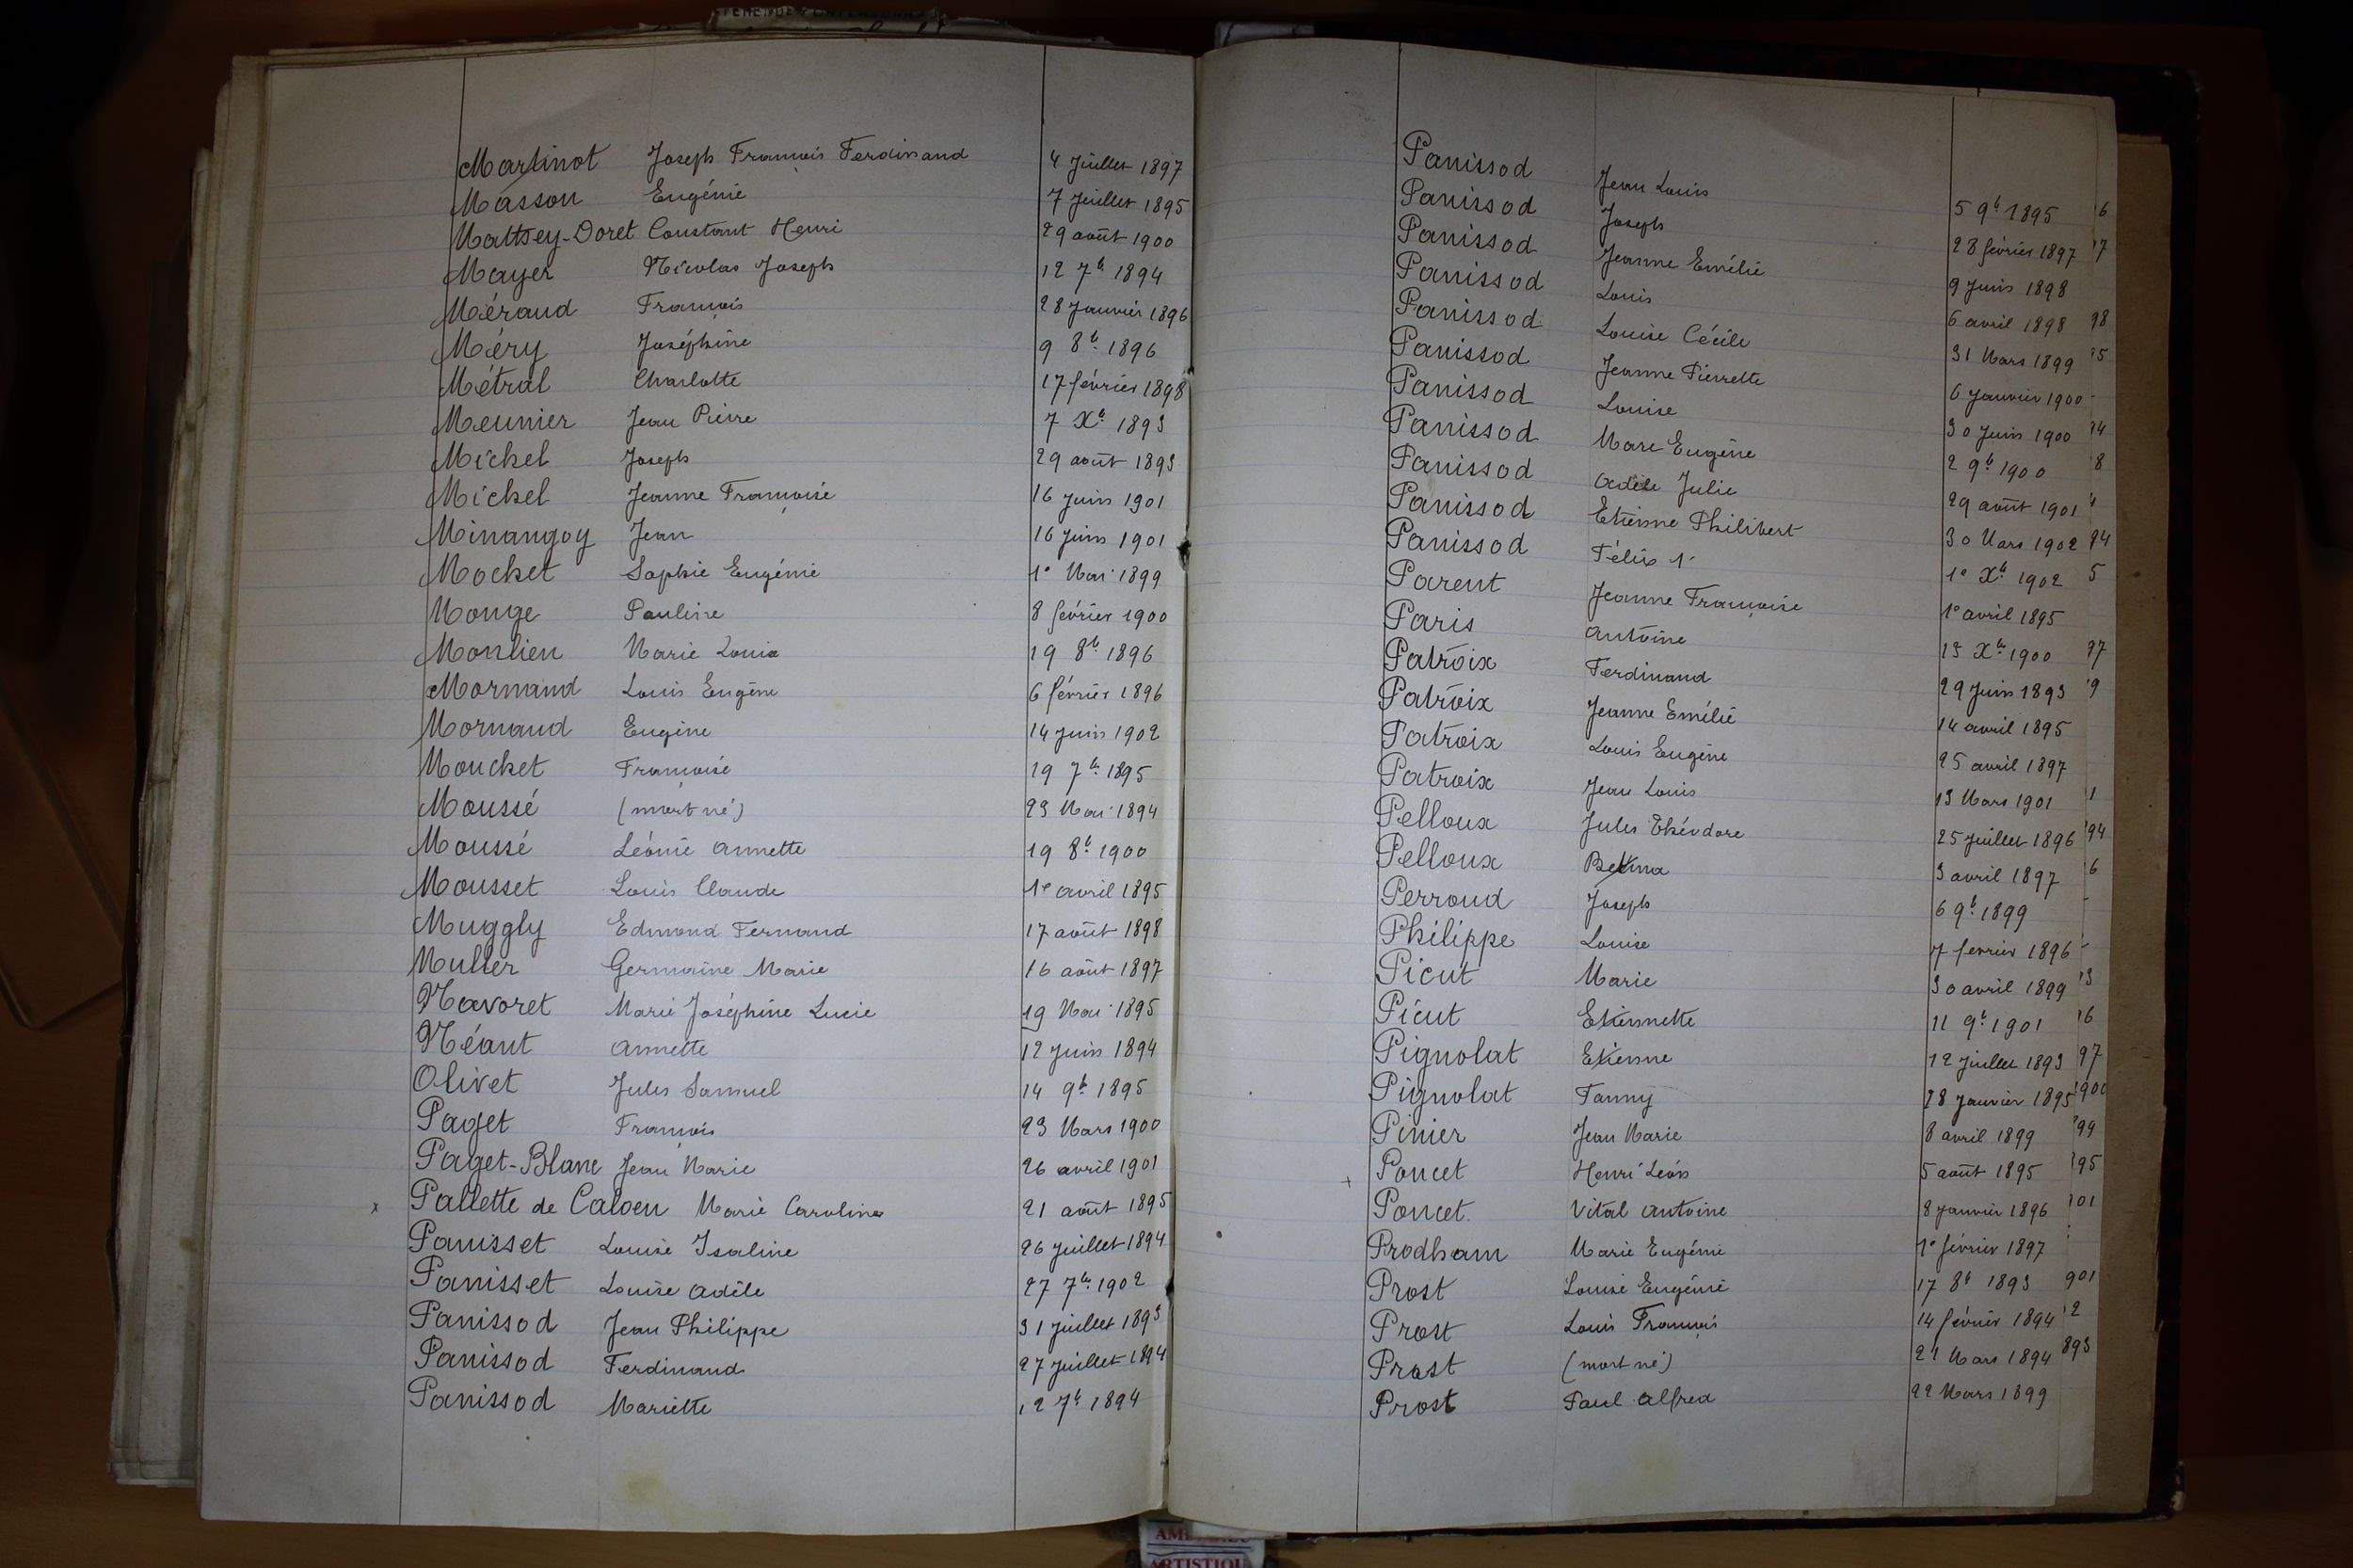 Martinot Joseph François Ferdinand 4 Juillet 1897
Masson Eugénie 7 Juillet 1895
Mattsey-Doret Constant Henri 29 août 1900
Mayer Nicolas Joseph 12 7b 1894
Méraud François 28 Janvier 1896
Méry Joséphine 9 8b 1896
Métral Charlotte 17 février 1898
Meunier Jean Pierre 7 Xb 1893
Michel Joseph 29 août 1893
Michel Jeanne Françoise 16 Juin 1901
Minangoy Jean 16 Juin 1901
Mochet Sophie Eugénie 1e Mai 1899
Monge Pauline 8 février 1900
Monlien Marie Louise 19 8b 1896
Mornand Louis Eugène 6 février 1896
Mornand Eugène 14 Juin 1902
Mouchet Françoise 19 7b 1895
Moussé (mort né) 23 Mai 1894
Moussé Léonie Annette 19 8b 1900
Mousset Louis Claude 1e avril 1895
Muggly Edmond Fernand 17 août 1898
Muller Germaine Marie 16 août 1897
Navoret Marie Joséphine Lucie 19 Mai 1895
Néant Annette 12 Juin 1894
Olivet Jules Samuel 14 9b 1895
Paget François 23 Mars 1900
Paget-Blanc Jean Marie 26 avril 1901
x Pallette de Caloen Marie Caroline 21 août 1895
Panisset Louise Isaline 26 Juillet 1894
Panisset Louise Adèle 27 7b 1902
Panissod Jean Philippe 31 Juillet 1893
Panissod Ferdinand 27 Juillet 1894
Panissod Mariette 12 7b 1894
Panissod Jean Louis 5 9b 1895
Panissod Joseph 28 février 1897
Panissod Jeanne Emélie 9 Juin 1898
Panissod Louis 6 avril 1898
Panissod Louise Cécile 31 Mars 1899
Panissod Jeanne Pierrette 6 Janvier 1900
Panissod Louise 30 Juin 1900
Panissod Marc Eugène 2 9b 1900
Panissod Adèle Julie 29 août 1901
Panissod Etienne Philibert 30 Mars 1902
Panissod Félix 1e Xb 1902
Parent Jeanne Françoise 1e avril 1895
Paris Antoine 13 Xb 1900
Patroix Ferdinand 29 Juin 1893
Patroix Jeanne Emélie 14 avril 1895
Patroix Louis Eugène 25 avril 1897
Patroix Jean Louis 13 Mars 1901
Pelloux Jules Théodore 25 Juillet 1896
Pelloux Betina 3 avril 1897
Perroud Joseph 6 9b 1899
Philippe Louise 7 fevrier 1896
Picut Marie 30 avril 1899
Picut Etiennette 11 9b 1901
Pignolat Etienne 12 Juillet 1893
Pignolat Fanny 28 Janvier 1895
Pinier Jean Marie 8 avril 1899
+ Poncet Henri Léon 5 août 1895
Poncet Vital Antoine 8 Janvier 1896
Prodham Marie Eugénie 1e février 1897
Prost Louise Eugénie 17 8b 1893
Prost Louis François 14 février 1894
Prost (mort né) 21 Mars 1894
Prost Paul Alfred 22 Mars 1899